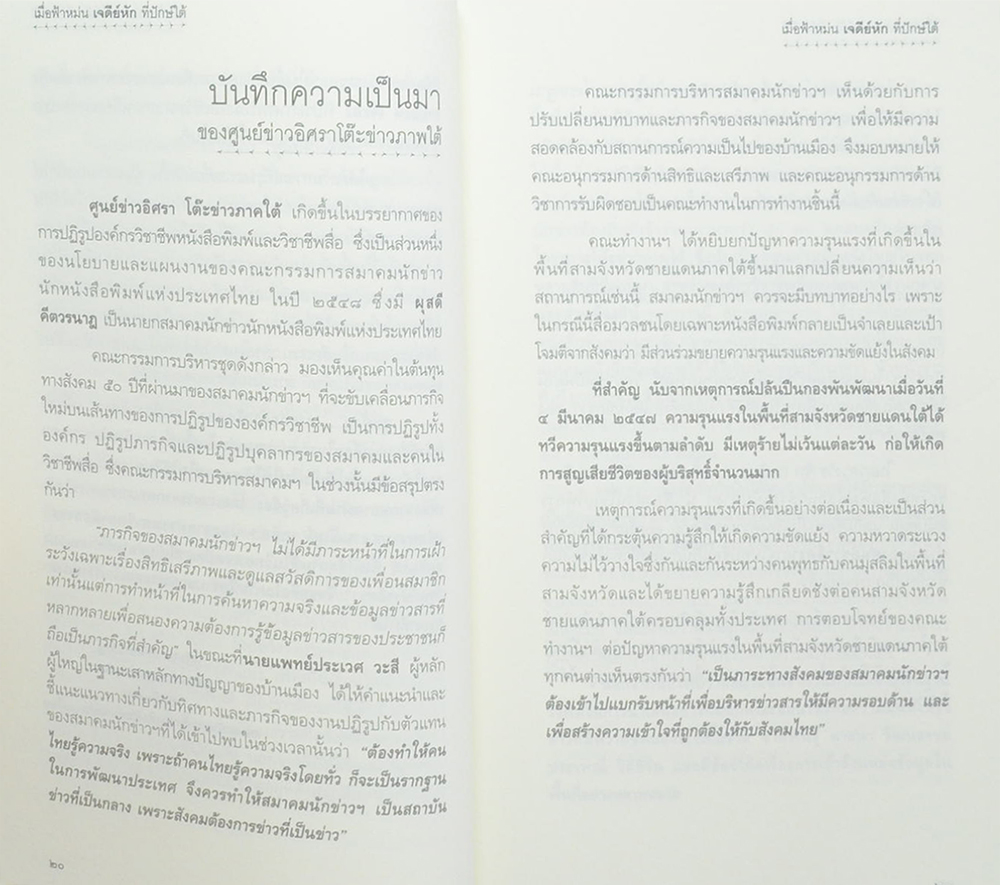 เมื่อฟ้าหม่น เจดีย์หัก ที่ปักษ์ใต้
บันทึกความเป็นมา
ของศูนย์ข่าวอิศราโต๊ะข่าวภาพใต้
ศูนย์ข่าวอิศรา โต๊ะข่าวภาคใต้ เกิดขึ้นในบรรยากาศของ
การปฏิรูปองค์กรวิชาชีพหนังสือพิมพ์และวิชาชีพสื่อ ซึ่งเป็นส่วนหนึ่ง
ของนโยบายและแผนงานของคณะกรรมการสมาคมนักข่าว
นักหนังสือพิมพ์แห่งประเทศไทย ในปี ๒๕๔๘ ซึ่งมี ผุสดี
คีตวรนาฏ เป็นนายกสมาคมนักข่าวนักหนังสือพิมพ์แห่งประเทศไทย
คณะกรรมการบริหารชุดดังกล่าว มองเห็นคุณค่าในต้นทุน
ทางสังคม ๕๐ ปีที่ผ่านมาของสมาคมนักข่าวฯ ที่จะขับเคลื่อนภารกิจ
ใหม่บนเส้นทางของการปฏิรูปขององค์กรวิชาชีพ เป็นการปฏิรูปทั้ง
องค์กร ปฏิรูปภารกิจและปฏิรูปบุคลากรของสมาคมและคนใน
วิชาชีพสื่อ ซึ่งคณะกรรมการบริหารสมาคมฯ ในช่วงนั้นมีข้อสรุปตรง
กันว่า
"ภารกิจของสมาคมนักข่าวฯ ไม่ได้มีภาระหน้าที่ในการเฝ้า
ระวังเฉพาะเรื่องสิทธิเสรีภาพและดูแลสวัสดิการของเพื่อนสมาชิก
เท่านั้นแต่การทำหน้าที่ในการค้นหาความจริงและข้อมูลข่าวสารที่
หลากหลายเพื่อสนองความต้องการรู้ข้อมูลข่าวสารของประชาชนก็
ถือเป็นภารกิจที่สำคัญ" ในขณะที่นายแพทย์ประเวศ วะสี ผู้หลัก
ผู้ใหญ่ในฐานะเสาหลักทางปัญญาของบ้านเมือง ได้ให้คำแนะนำและ
ชี้แนะแนวทางเกี่ยวกับทิศทางและภารกิจของงานปฏิรูปกับตัวแทน
ของสมาคมนักข่าวฯที่ได้เข้าไปพบในช่วงเวลานั้นว่า "ต้องทำให้คน
ไทยรู้ความจริง เพราะถ้าคนไทยรู้ความจริงโดยทั่ว ก็จะเป็นรากฐาน
ในการพัฒนาประเทศ จึงควรทำให้สมาคมนักข่าวฯ เป็นสถาบัน
ข่าวที่เป็นกลาง เพราะสังคมต้องการข่าวที่เป็นข่าว"
๒๐
เมื่อฟ้าหม่น เจดีย์หัก ที่ปักษ์ใต้
คณะกรรมการบริหารสมาคมนักข่าวฯ เห็นด้วยกับการ
ปรับเปลี่ยนบทบาทและภารกิจของสมาคมนักข่าวฯ เพื่อให้มีความ
สอดคล้องกับสถานการณ์ความเป็นไปของบ้านเมือง จึงมอบหมายให้
คณะอนุกรรมการด้านสิทธิและเสรีภาพ และคณะอนุกรรมการด้าน
วิชาการรับผิดชอบเป็นคณะทำงานในการทำงานชิ้นนี้
คณะทำงานฯ ได้หยิบยกปัญหาความรุนแรงที่เกิดขึ้นใน
พื้นที่สามจังหวัดชายแดนภาคใต้ขึ้นมาแลกเปลี่ยนความเห็นว่า
สถานการณ์เช่นนี้ สมาคมนักข่าวฯ ควรจะมีบทบาทอย่างไร เพราะ
ในกรณีนี้สื่อมวลชนโดยเฉพาะหนังสือพิมพ์กลายเป็นจำเลยและเป้า
โจมตีจากสังคมว่า มีส่วนร่วมขยายความรุนแรงและความขัดแย้งในสังคม
ที่สำคัญ นับจากเหตุการณ์ปล้นปืนกองพันพัฒนาเมื่อวันที่
๔ มีนาคม ๒๕๔๗ ความรุนแรงในพื้นที่สามจังหวัดชายแดนใต้ได้
ทวีความรุนแรงขึ้นตามลำดับ มีเหตุร้ายไม่เว้นแต่ละวัน ก่อให้เกิด
การสูญเสียชีวิตของผู้บริสุทธิ์จำนวนมาก
เหตุการณ์ความรุนแรงที่เกิดขึ้นอย่างต่อเนื่องและเป็นส่วน
สำคัญที่ได้กระตุ้นความรู้สึกให้เกิดความขัดแย้ง ความหวาดระแวง
ความไม่ไว้วางใจซึ่งกันและกันระหว่างคนพุทธกับคนมุสลิมในพื้นที่
สามจังหวัดและได้ขยายความรู้สึกเกลียดชังต่อคนสามจังหวัด
ชายแดนภาคใต้ครอบคลุมทั้งประเทศ การตอบโจทย์ของคณะ
ทำงานฯ ต่อปัญหาความรุนแรงในพื้นที่สามจังหวัดชายแดนภาคใต้
ทุกคนต่างเห็นตรงกันว่า "เป็นภาระทางสังคมของสมาคมนักข่าวฯ
ต้องเข้าไปแบกรับหน้าที่เพื่อบริหารข่าวสารให้มีความรอบด้าน และ
เพื่อสร้างความเข้าใจที่ถูกต้องให้กับสังคมไทย"